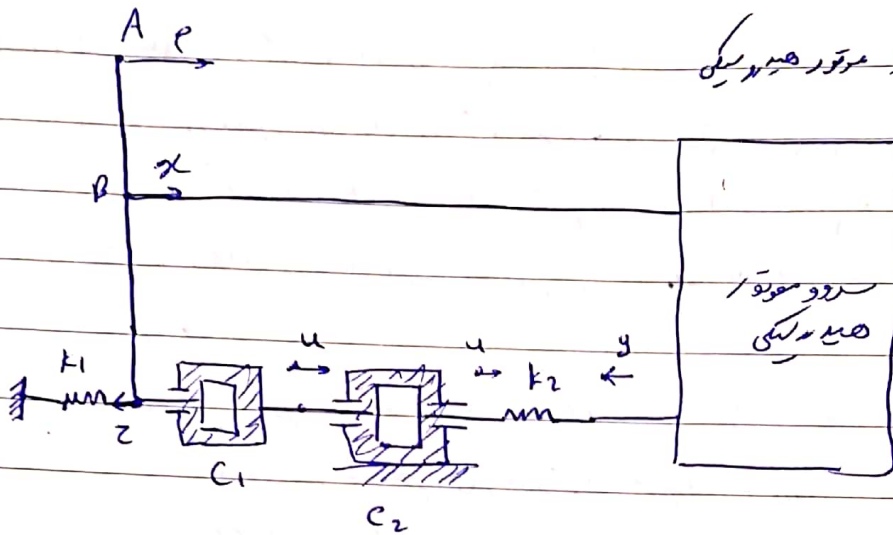 A
e
موتور هیدرولیکی
B
x
سروو موتور
هیدرولیکی
k1
u
u
y
k2
z
C1
C2